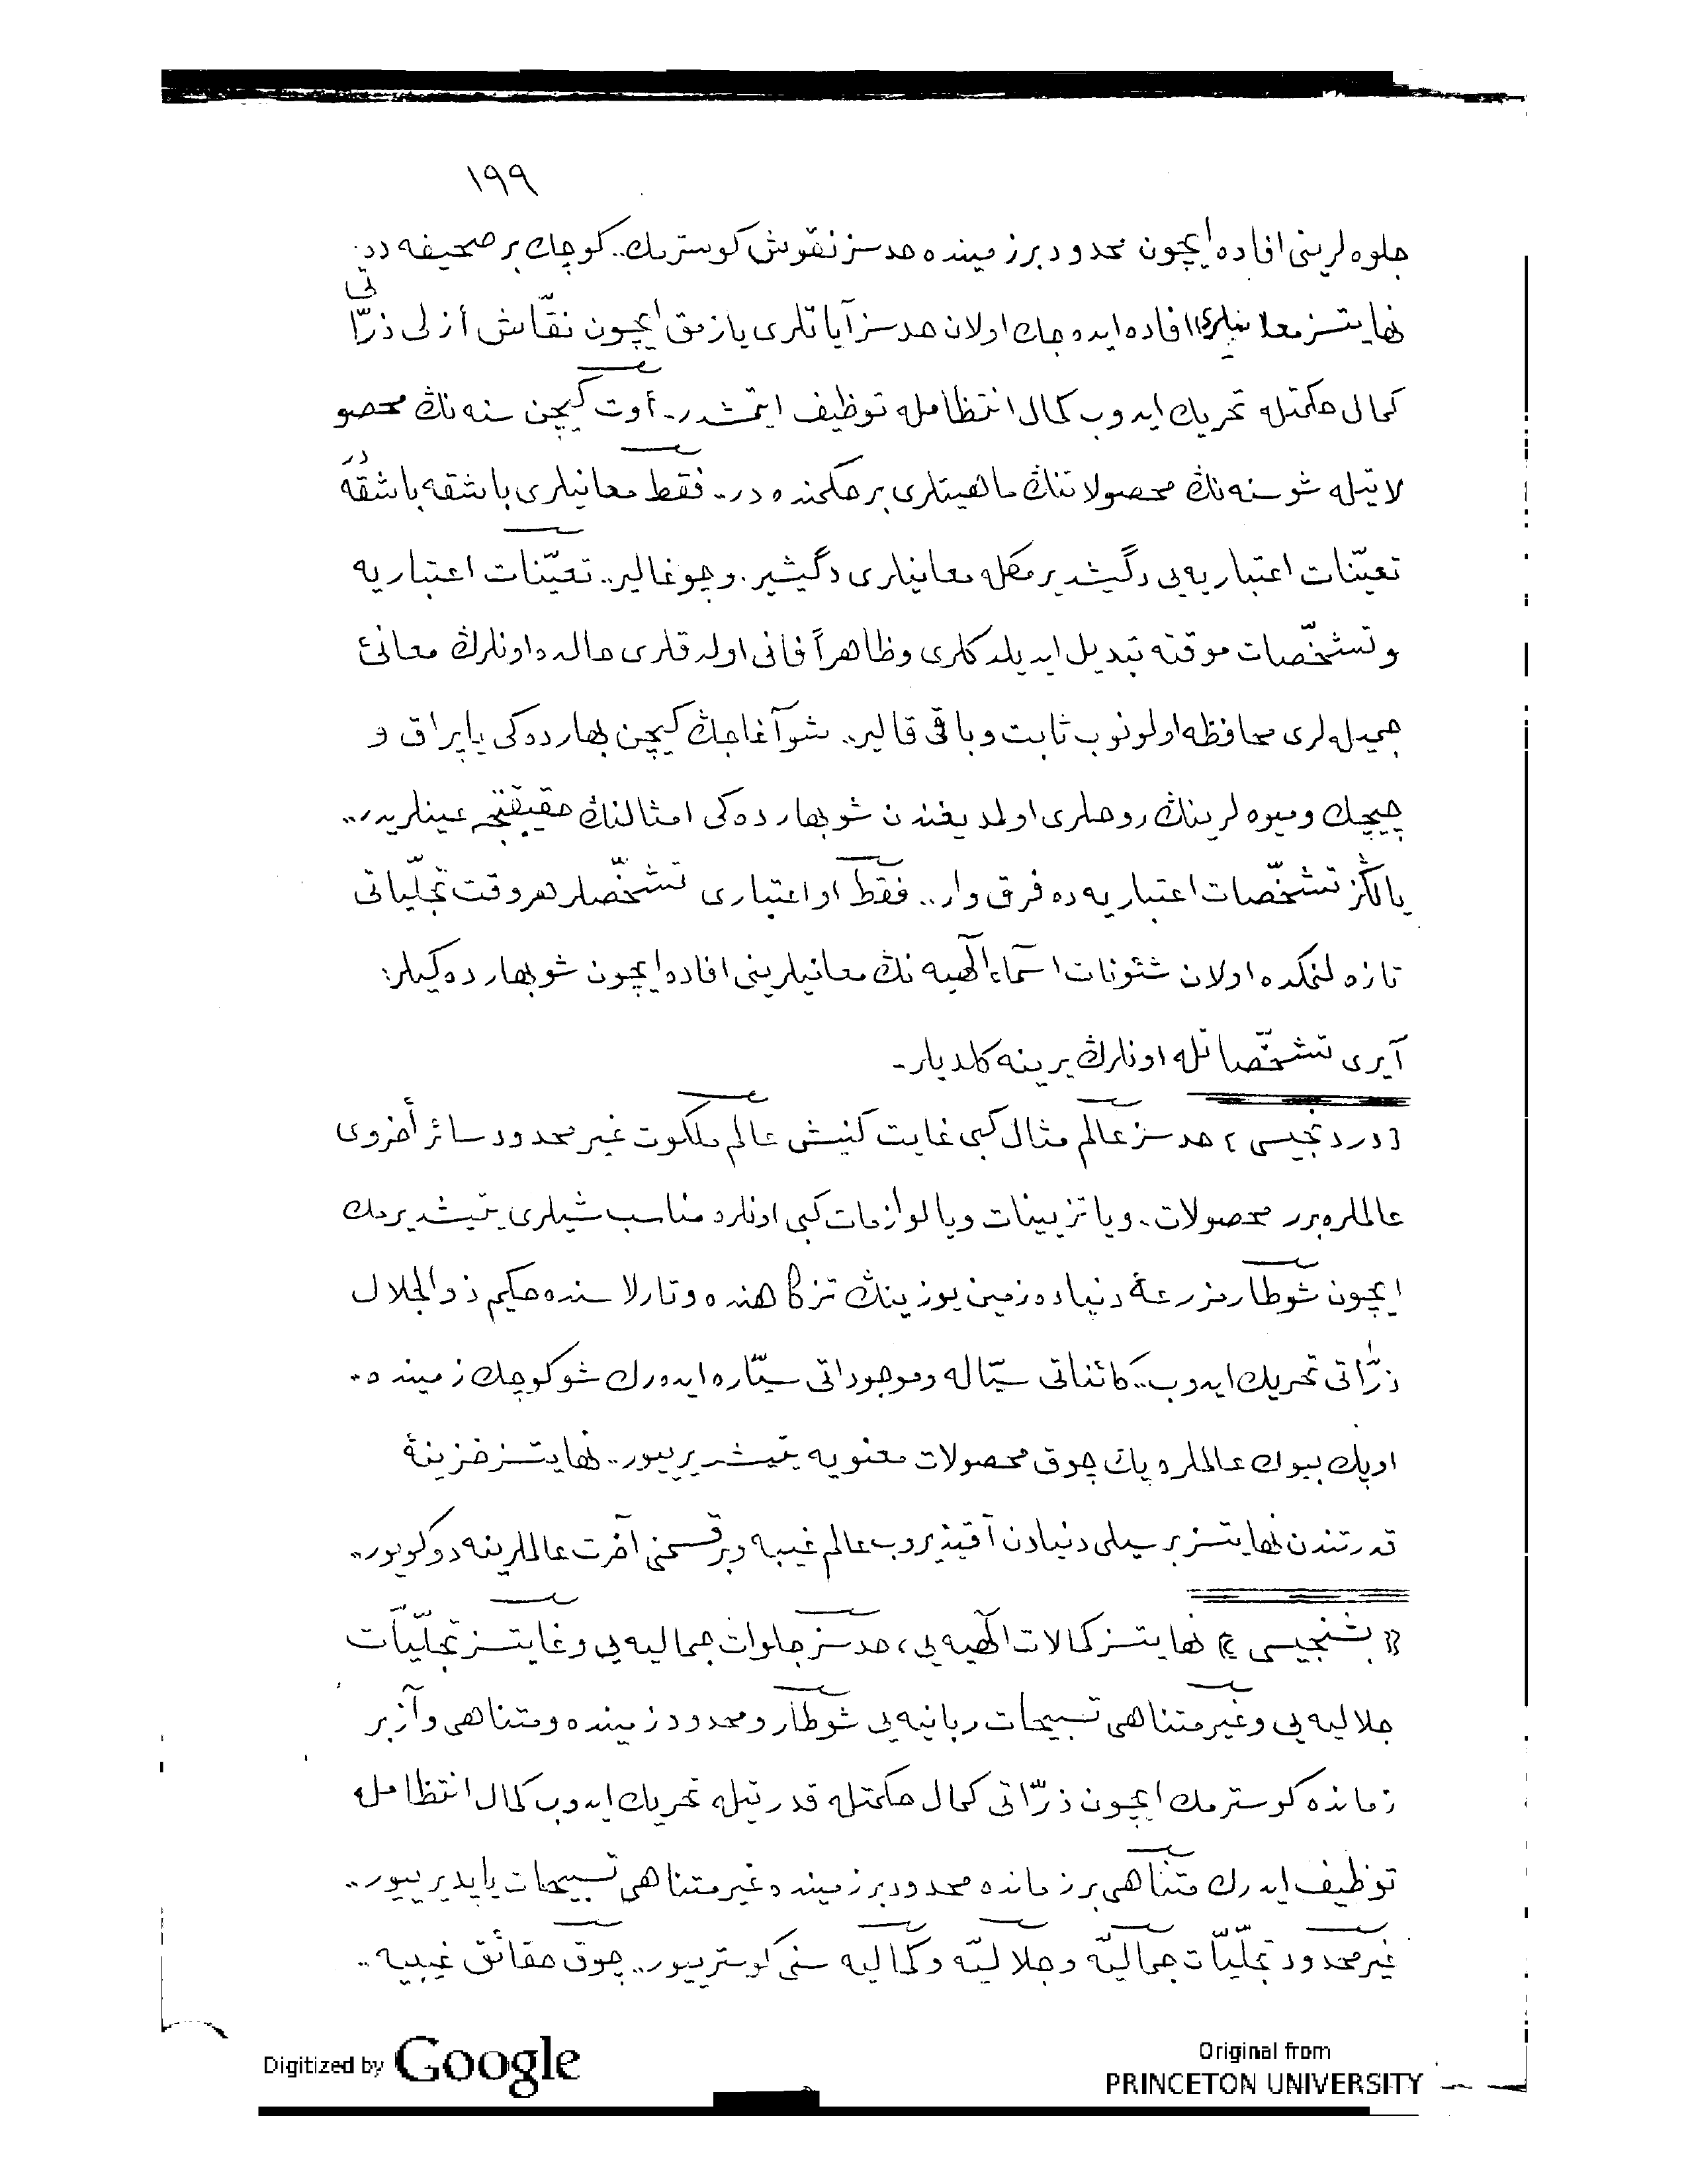 ١٩٩
جلوه لرينى افاده ايچون محدود بر زمينده حدسز نقوش كوسترمك.. كوچك بر صحيفه ده
نهايتسز معانيلرى افاده ايده جك اولان حدسز آياتلرى يازمق ايچون نقّاش أزلى ذرّاتى
كمال حكمتله تحريك ايدوب كمال انتظامله توظيف ايتمشدر. أوت كيچن سنه نڭ محصو
لاتيله شو سنه نڭ محصولاتنڭ ماهيتلرى بر حكمنده در.. فقط معانيلرى باشقه باشقه در
تعيّنات اعتباريه يى دگيشديرمكله معانيلرى دگيشير. و چوغالير.. تعيّنات اعتباريه
و تشخّصات موقته تبديل ايديلدكلرى و ظاهراً فانى اولدقلرى حالده اونلرڭ معانئ
جميله لرى محافظه اولونوب ثابت و باقى قالير.. شو آغاجڭ كيچن بهارده كى ياپراق و
چيچك و ميوه لرينڭ روحلرى اولمديغندن شو بهارده كى امثالنڭ حقيقتجه عينلريدر..
يالڭز تشخّصات اعتباريه ده فرق وار.. فقط او اعتبارى تشخّصلر هر وقت تجلّياتى
تازه لنمكده اولان شئونات اسماء الٓهيه نڭ معانيلرينى افاده ايچون شو بهارده كيلر:
آيرى تشخّصاتله اونلرڭ يرينه كلديلر.
{دردنجيسى} حدسز عالم مثال كبى غايت كنيش عالم ملكوت غير محدود سائر أخروى
عالملره برر محصولات. ويا تزيينات ويا لوازمات كبى اونلره مناسب شيلرى يتيشديرمك
ايچون شو طار مزرعۀ دنياده زمين يوزينڭ تزكاهنده و تارلاسنده حكيم ذو الجلال
ذرّاتى تحريك ايدوب.. كائناتى سيّاله و موجوداتى سيّاره ايده رك شو كوچك زمينده.
او پك بيوك عالملره پك چوق محصولات معنويه يتيشديرييور.. نهايتسز خزينۀ
قدرتندن نهايتسز بر سيلى دنيادن آقيديروب عالم غيبه و بر قسمنى آخرت عالملرينه دوكويور..
{{بشنجيسى}} نهايتسز كمالات الٓهيه يى، حدسز جلوات جماليه يى و غايتسز تجلّيات
جلاليه يى و غير متناهى تسبيحات ربانيه يى شو طار و محدود زمينده و متناهى و آز بر
زمانده كوسترمك ايچون ذرّاتى كمال حكمتله قدرتيله تحريك ايدوب كمال انتظامله
توظيف ايدرك متناهى بر زمانده محدود بر زمينده غير متناهى تسبيحات ياپديرييور..
غير محدود تجلّيات جماليّه و جلاليّه و كماليه سنى كوسترييور.. چوق حقائق غيبيه..
Digitized by Google
Original from
PRINCETON UNIVERSITY